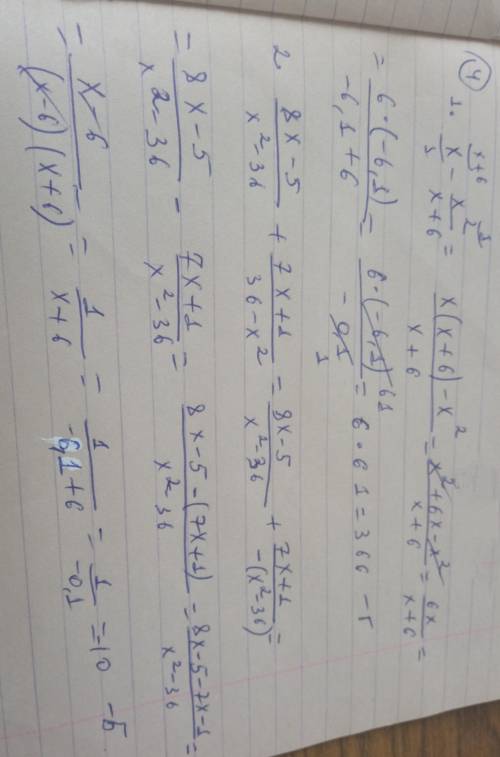 ④
1. x/1 - x²/(x+6) = (x(x+6) - x²)/(x+6) = (x² + 6x - x²)/(x+6) = 6x/(x+6) =
= 6·(-6,1)/(-6,1+6) = 6·(-6,1)/(-0,1) = 6·61 = 366 - Б
2 (8x-5)/(x²-36) + (7x+1)/(36-x²) = (8x-5)/(x²-36) + (7x+1)/(-(x²-36)) =
= (8x-5)/(x²-36) - (7x+1)/(x²-36) = (8x-5-(7x+1))/(x²-36) = (8x-5-7x-1)/(x²-36) =
= (x-6)/((x-6)(x+6)) = = 1/(x+6) = 1/(-6,1+6) = 1/(-0,1) = 10 - Б